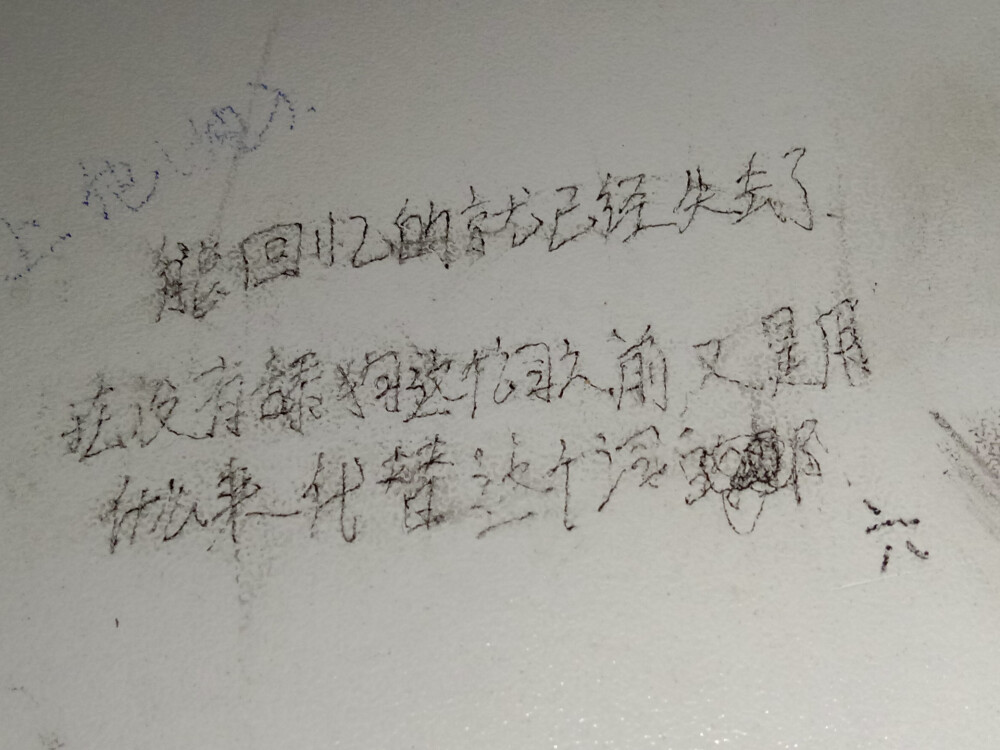 能回忆的就已经失去了
在没有舔狗这个词之前又是用
什么来代替这个词的那
六